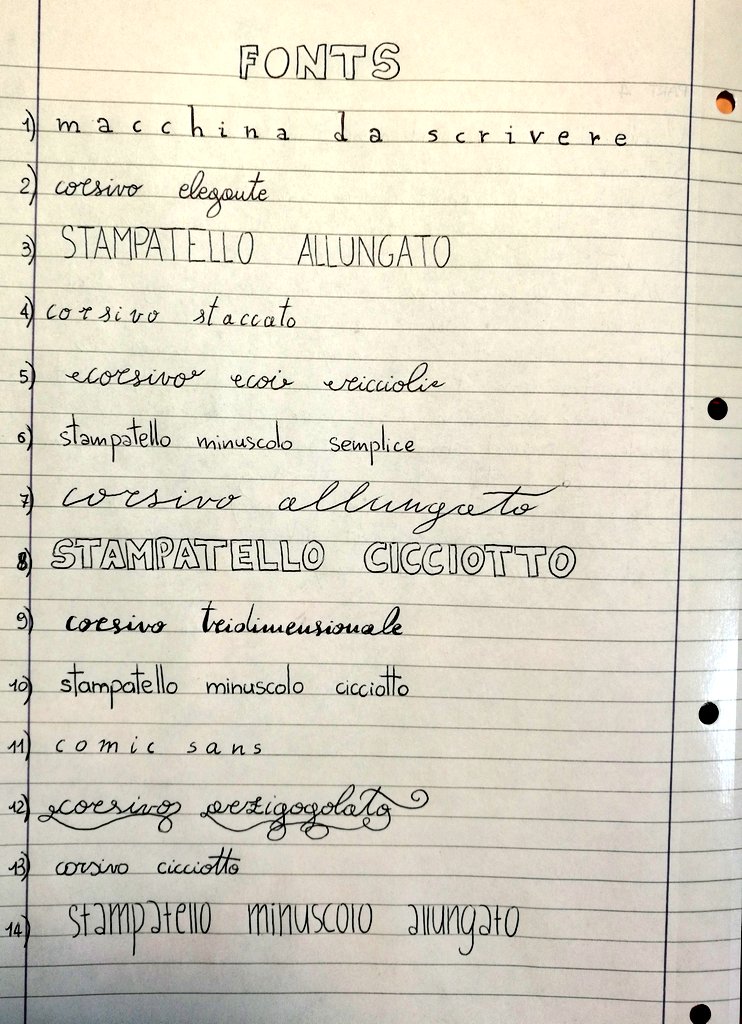 FONTS
1) macchina da scrivere
2) corsivo elegante
3) STAMPATELLO ALLUNGATO
4) corsivo staccato
5) corsivo coi riccioli
6) stampatello minuscolo semplice
7) corsivo allungato
8) STAMPATELLO CICCIOTTO
9) corsivo tridimensionale
10) stampatello minuscolo cicciotto
11) comic sans
12) corsivo arzigogolato
13) corsivo cicciotto
14) stampatello minuscolo allungato